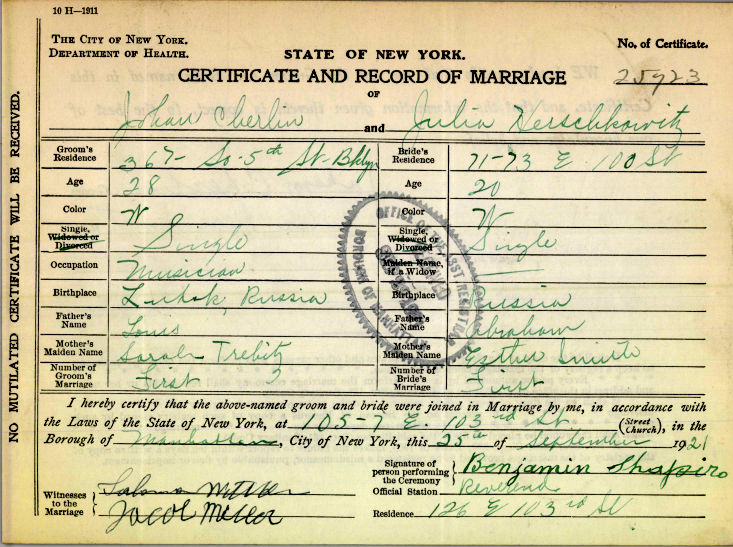 10 H—1911
THE CITY OF NEW YORK.
DEPARTMENT OF HEALTH.
STATE OF NEW YORK.
No. of Certificate.
CERTIFICATE AND RECORD OF MARRIAGE
25923
OF
Johan Cherlin and Julia Herschkowitz
Groom's Residence 367- So-5th St-Bklyn Bride's Residence 71-73 E. 100 St
Age 28 Age 20
Color W Color W
Single, Widowed or Divorced Single Single, Widowed or Divorced Single
Occupation Musician Maiden Name, if a Widow —
Birthplace Lutsk, Russia Birthplace Russia
Father's Name Louis Father's Name Abraham
Mother's Maiden Name Sarah Mother's Maiden Name Esther
Number of Groom's Marriage First Number of Bride's Marriage First
I hereby certify that the above-named groom and bride were joined in Marriage by me, in accordance with
the Laws of the State of New York, at 105-7 E. 103rd St. (Street Church), in the
Borough of Manhattan, City of New York, this 25th of September 1921
Signature of person performing the Ceremony Benjamin Shapiro
Official Station Reverend
Witnesses to the Marriage
Jacob
Residence 126 E 103rd St
NO MUTILATED CERTIFICATE WILL BE RECEIVED.
BOROUGH OF MANHATTAN